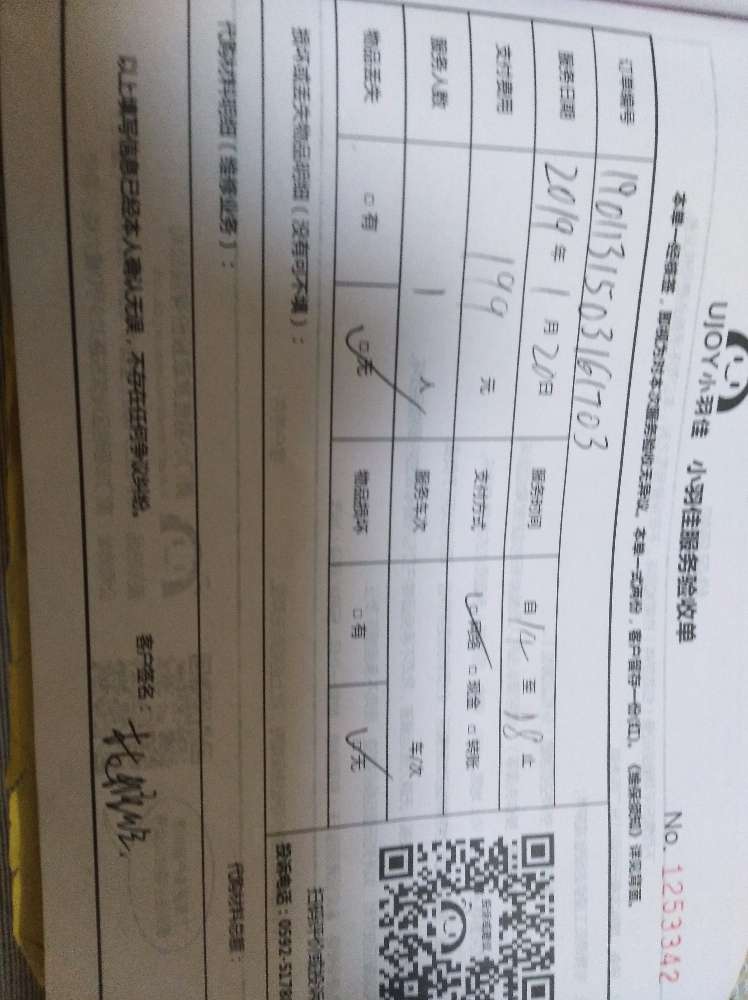 UJOY小羽佳 小羽佳服务验收单
No. 1253342
本单一经签签，即视为对本次服务验收无异议。本单一式两份，客户留存一份(红)。《维保须知》详见背面。
订单编号 1901131503161703
服务日期 2019年1月20日 服务时间 自14至18止
支付费用 199元 支付方式 □网络 □现金 □转账
服务人数 1人 服务车次 车/次
物品丢失 □有 □无 物品损坏 □有 □无
损坏或丢失物品明细（没有可不填）：
扫码评价或投诉
投诉电话：0592-5178
代购材料明细（维修业务）：
代购材料总额：
以上填写信息已经本人确认无误，不存在任何争议纠纷。
客户签名：